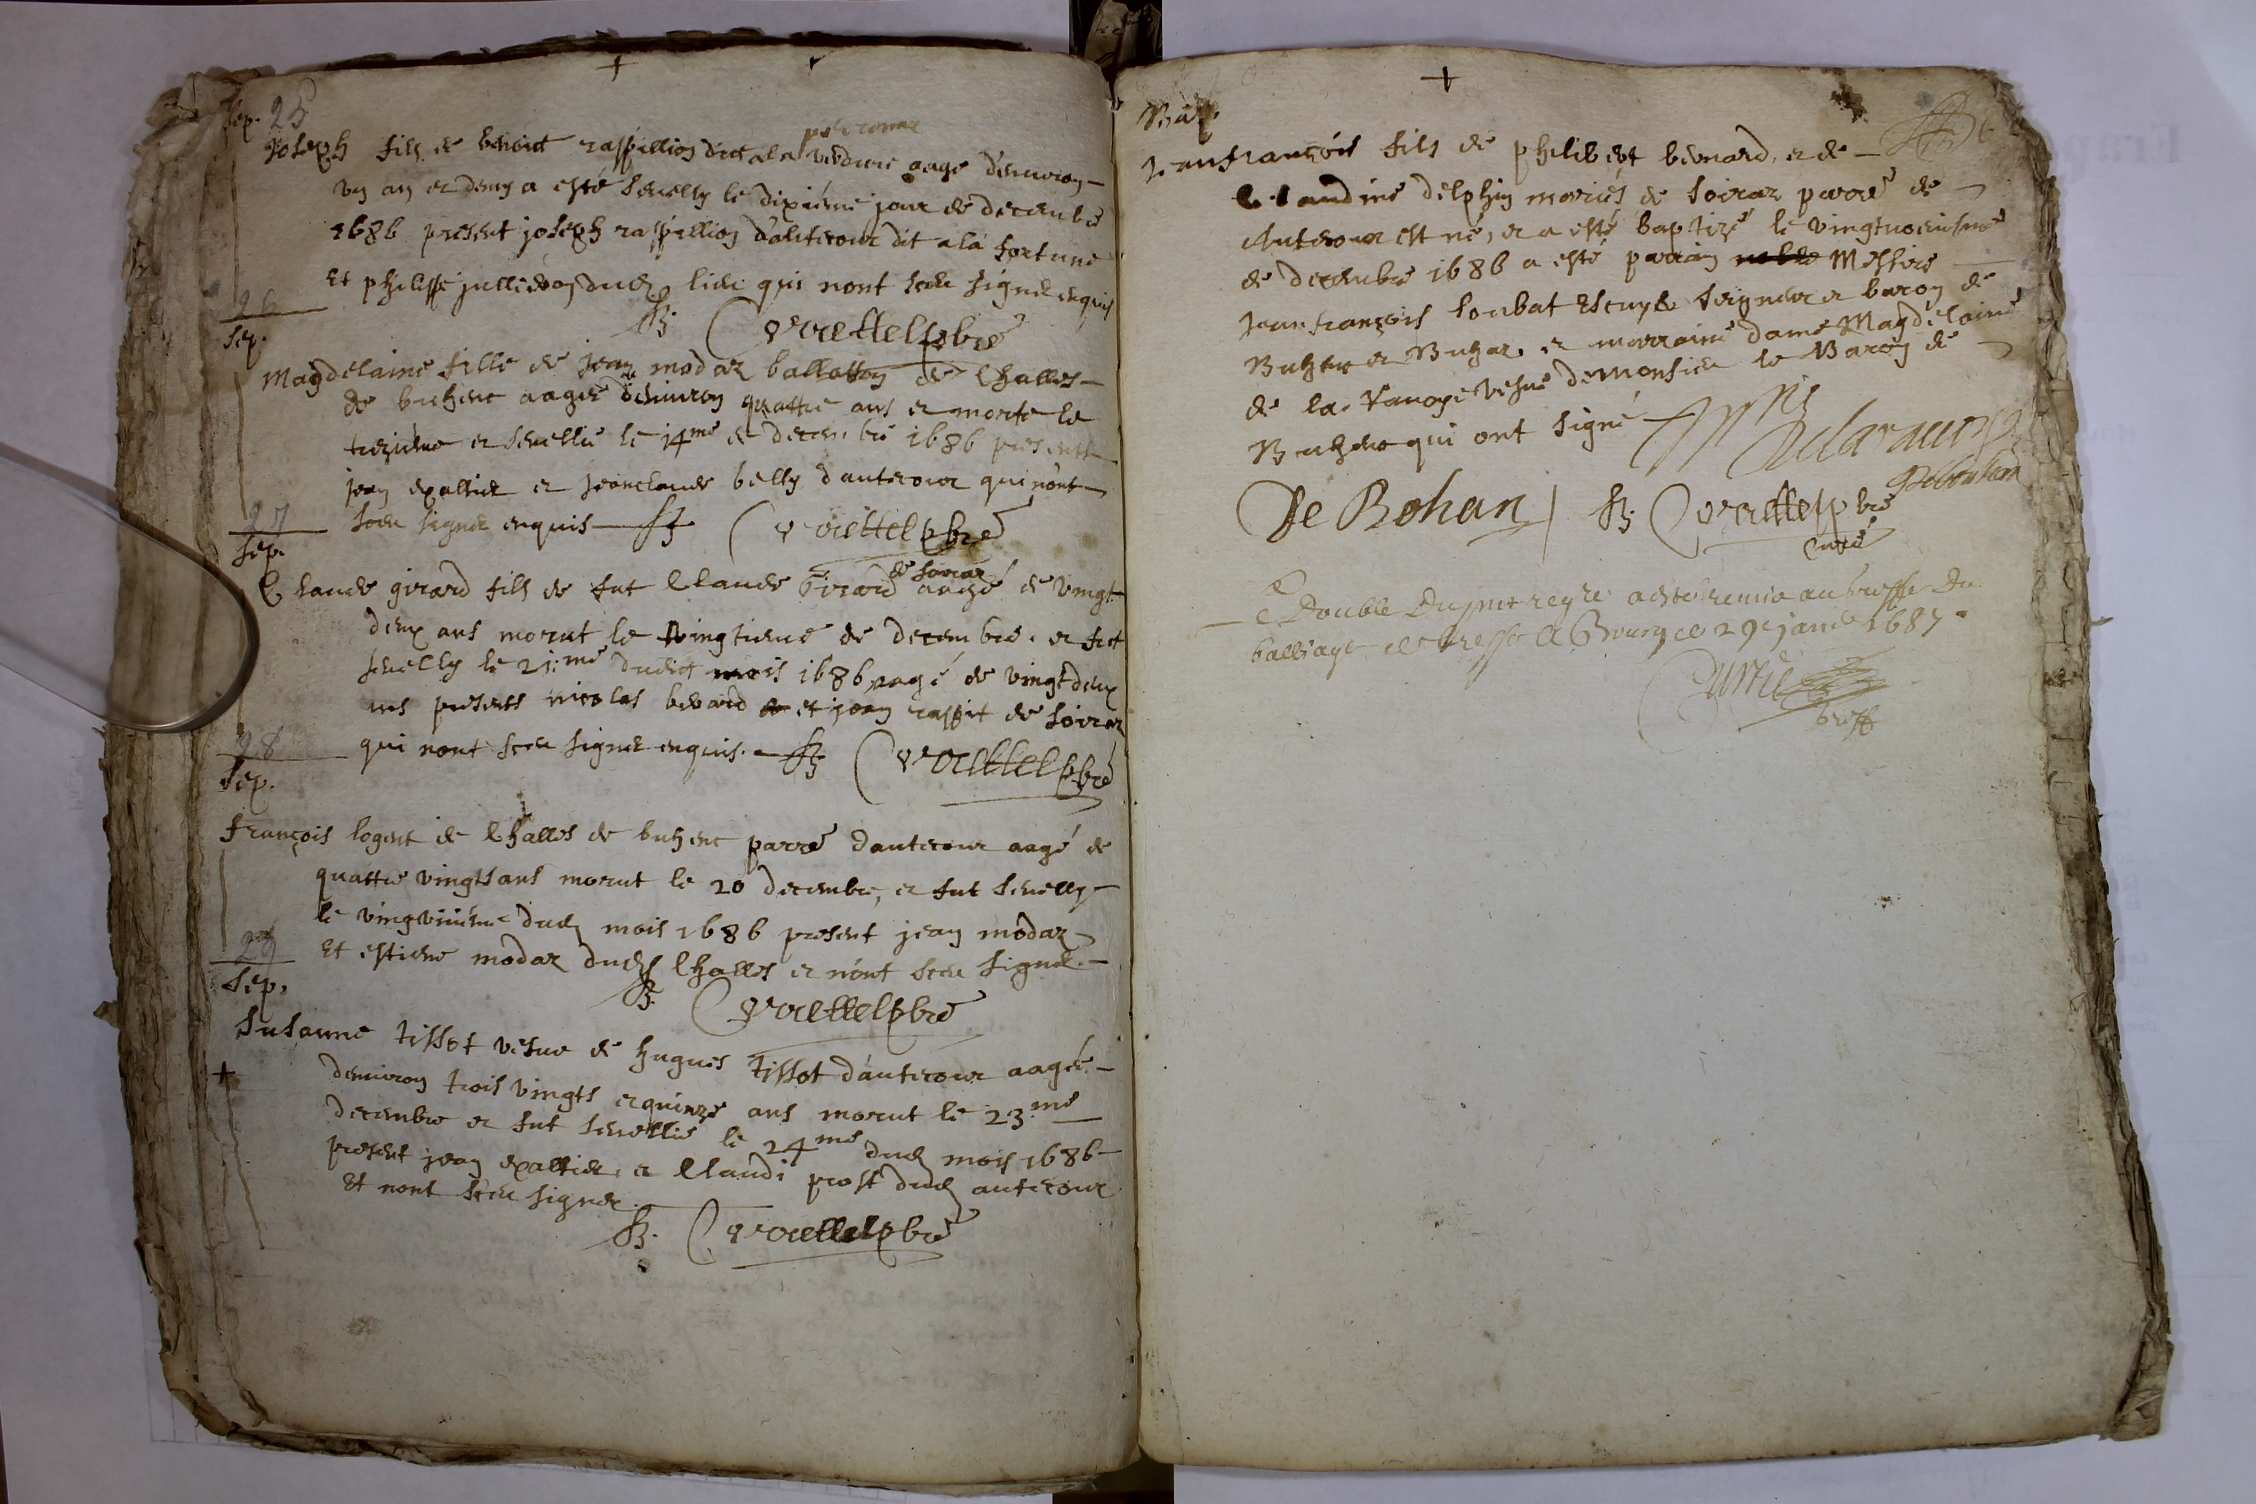 Sep. 25
Joseph fils de benoict raffillion dict a la verdure aagé denuiron
vn an et demy a esté seuelly le dixiéme jour de decembre
1686 present joseph raffillion dauterour dit a la fortune
Et philippe jullieron dud. lieu qui nont sceu signer enquis
pbre
26
Sep.
Magdelaine fille de jean modaz ballatton de Challes
de buhenc aagée denuiron quattre ans et morte le
treziéme et seuellie le 14me de decembre 1686 presents
jean exattier et jeanclaude belly dauterour qui nont
sceu signer enquis
pbre
27
Sep.
de soiraz
Claude girard fils de fut Claude Girard aagé de vingt
deux ans morut le vingtieme de decembre et fut
seuelly le 21:me dudict mois 1686 aagé de vingt deux
ans presents nicolas beuard et jean raffit de soiraz
qui nont sceu signer enquis.
pbre
28
Sep.
françois logent de Challes de buhenc parre dauterour aagé de
quattre vingts ans morut le 20 decembre, et fut seuelly
le dud. mois 1686 present jean modaz
Et estiene modaz dud. Challes et nont sceu signer
pbre
29
Sep.
Susanne tissot vesue de hugues tissot dauterour aagée
denuiron trois vingts et quinze ans morut le 23me
decembre et fut seuellie le 24me dud. mois 1686
present jean exattier et Claudi prost dud. auterour
Et nont sceu signer
pbre
Bap.
Jeanfrançois fils de philibert beunard, et de
Claudine delphin mariés de soiraz parre de
Auterour est né, et a esté baptizé le
de decembre 1686 a esté parrain Messire
Jean françois loubat Escuyer seigneur et baron de
Buhenc et Buhaz, et marraine dame Magdelaine
de la vesue de Monsieur le Baron de
Buhenc qui ont signé
De Bohan
pbre
curé
Le Double Du a esté remis au Greffe du
balliage de bresse A Bourg ce 29e janu. 1687